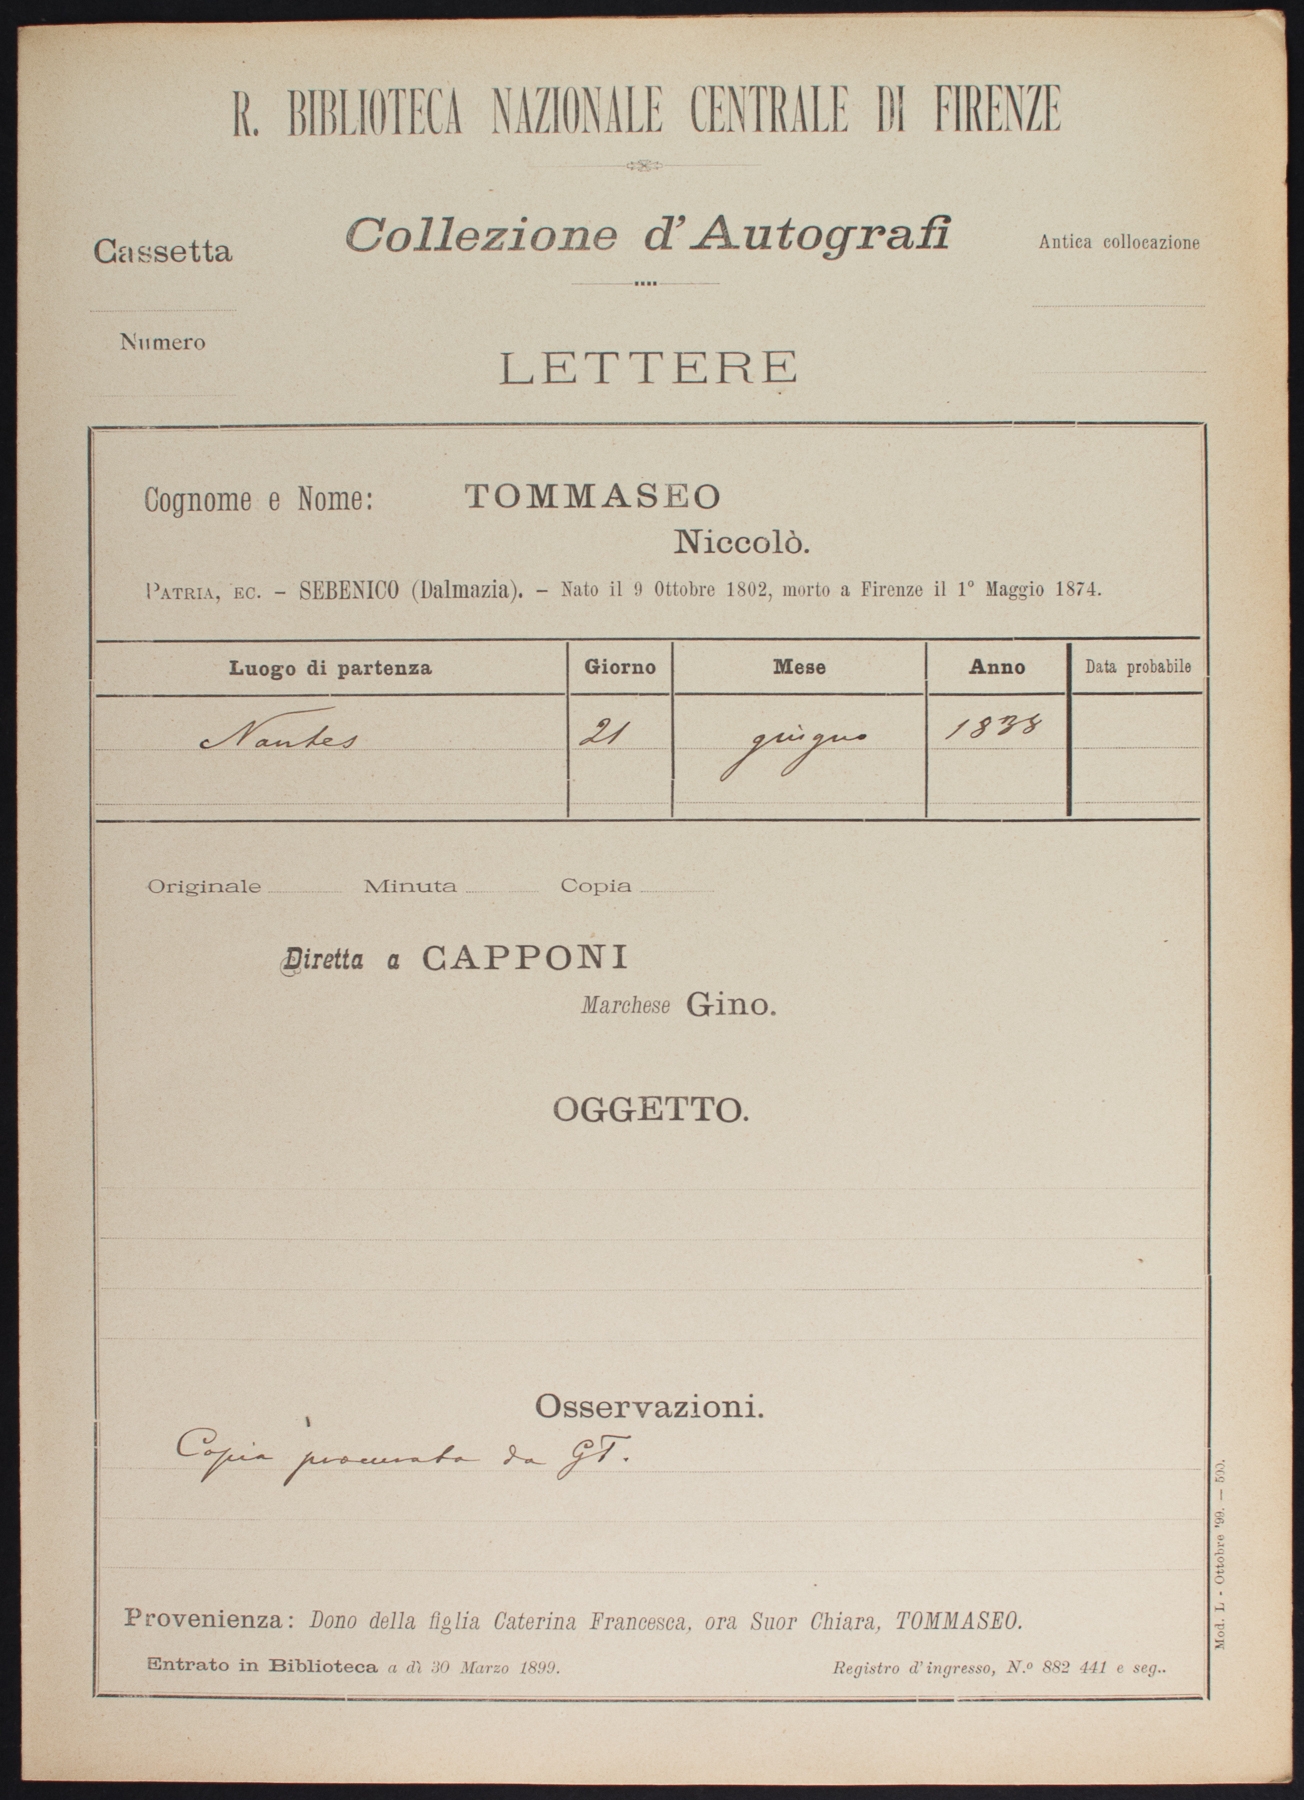 R. BIBLIOTECA NAZIONALE CENTRALE DI FIRENZE
Cassetta
Collezione d'Autografi
Antica collocazione
Numero
LETTERE
Cognome e Nome: TOMMASEO
Niccolò.
PATRIA, EC. – SEBENICO (Dalmazia). – Nato il 9 Ottobre 1802, morto a Firenze il 1° Maggio 1874.
Luogo di partenza Giorno Mese Anno Data probabile
Nantes 21 giugno 1838
Originale Minuta Copia
Diretta a CAPPONI
Marchese Gino.
OGGETTO.
Osservazioni.
Copia procurata da GT.
Provenienza: Dono della figlia Caterina Francesca, ora Suor Chiara, TOMMASEO.
Entrato in Biblioteca a dì 30 Marzo 1899. Registro d'ingresso, N.º 882 441 e seg..
Mod. L - Ottobre '99. — 500.